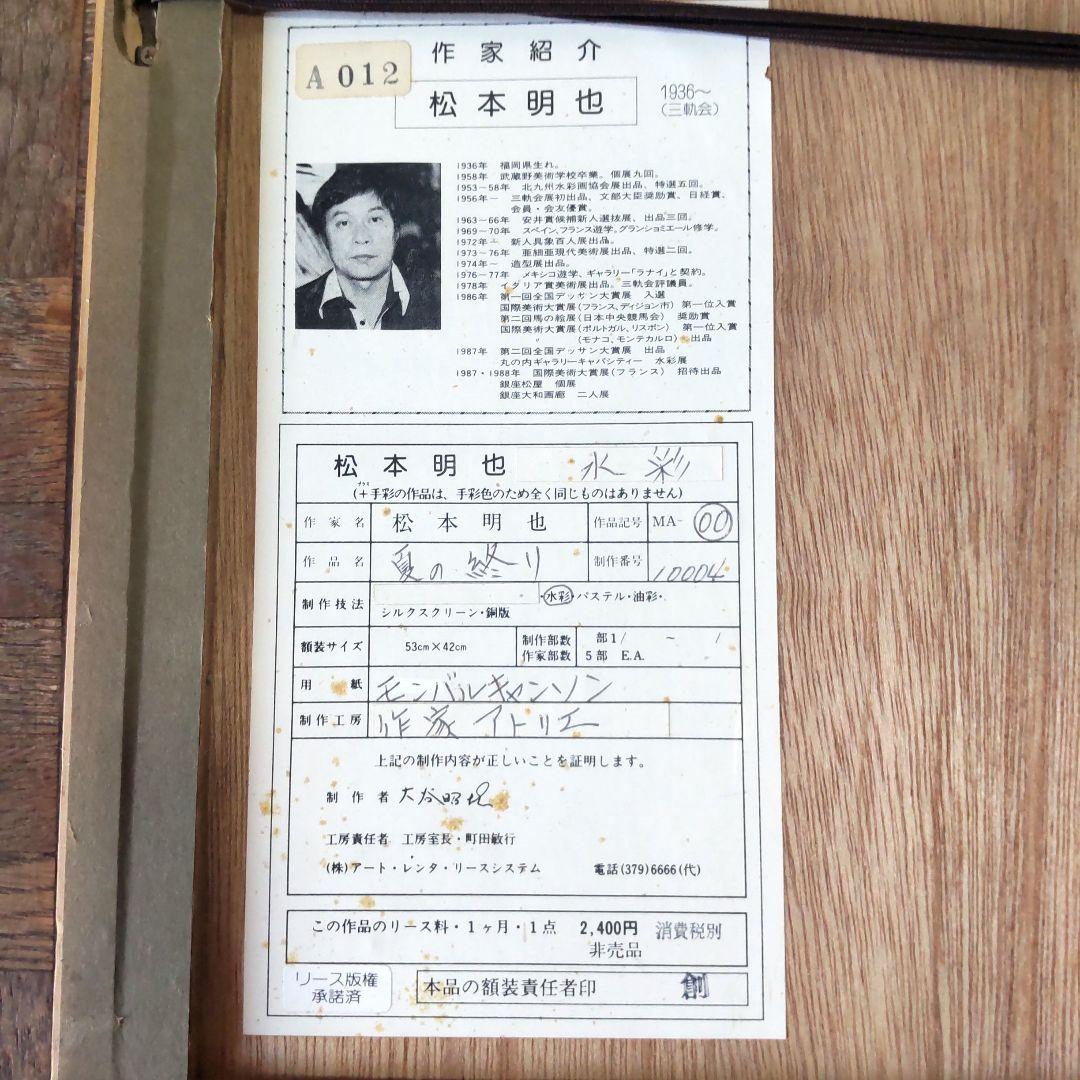 A 012
作家紹介
松本明也
1936〜
(三軌会)
1936年 福岡県生れ。
1958年 武蔵野美術学校卒業。個展九回。
1953−58年 北九州水彩画協会展出品、特選五回。
1956年− 三軌会展初出品、文部大臣奨励賞、日経賞、
会員・会友優賞。
1963−66年 安井賞候補新人選抜展、出品三回。
1969−70年 スペイン、フランス遊学。グランショミエール修学。
1972年− 新人具象百人展出品。
1973−76年 亜細亜現代美術展出品、特選二回。
1974年− 造型展出品。
1976−77年 メキシコ遊学、ギャラリー「ラナイ」と契約。
1978年 イタリア賞美術展出品。三軌会評議員。
1986年 第一回全国デッサン大賞展 入選
国際美術大賞展(フランス、ディジョン市) 第一位入賞
第二回馬の絵展(日本中央競馬会) 奨励賞
国際美術大賞展(ポルトガル、リスボン) 第一位入賞
〃 (モナコ、モンテカルロ) 出品
1987年 第二回全国デッサン大賞展 出品
丸の内ギャラリーキャパシティー 水彩展
1987・1988年 国際美術大賞展(フランス) 招待出品
銀座松屋 個展
銀座大和画廊 二人展
松本明也 水彩
プラス
(+手彩の作品は、手彩色のため全く同じものはありません)
作家名 松本明也 作品記号 MA- 00
作品名 夏の終り 制作番号 10004
制作技法 ・水彩・パステル・油彩・
シルクスクリーン・銅版
額装サイズ 53cm×42cm 制作部数 部1/ 〜 /
作家部数 5部 E.A.
用紙 モンバルキャンソン
制作工房 作家アトリエ
上記の制作内容が正しいことを証明します。
制作者
工房責任者 工房室長・町田敏行
(株)アート・レンタ・リースシステム 電話(379)6666(代)
この作品のリース料・1ヶ月・1点 2,400円 消費税別
非売品
リース版権
承諾済
本品の額装責任者印 創